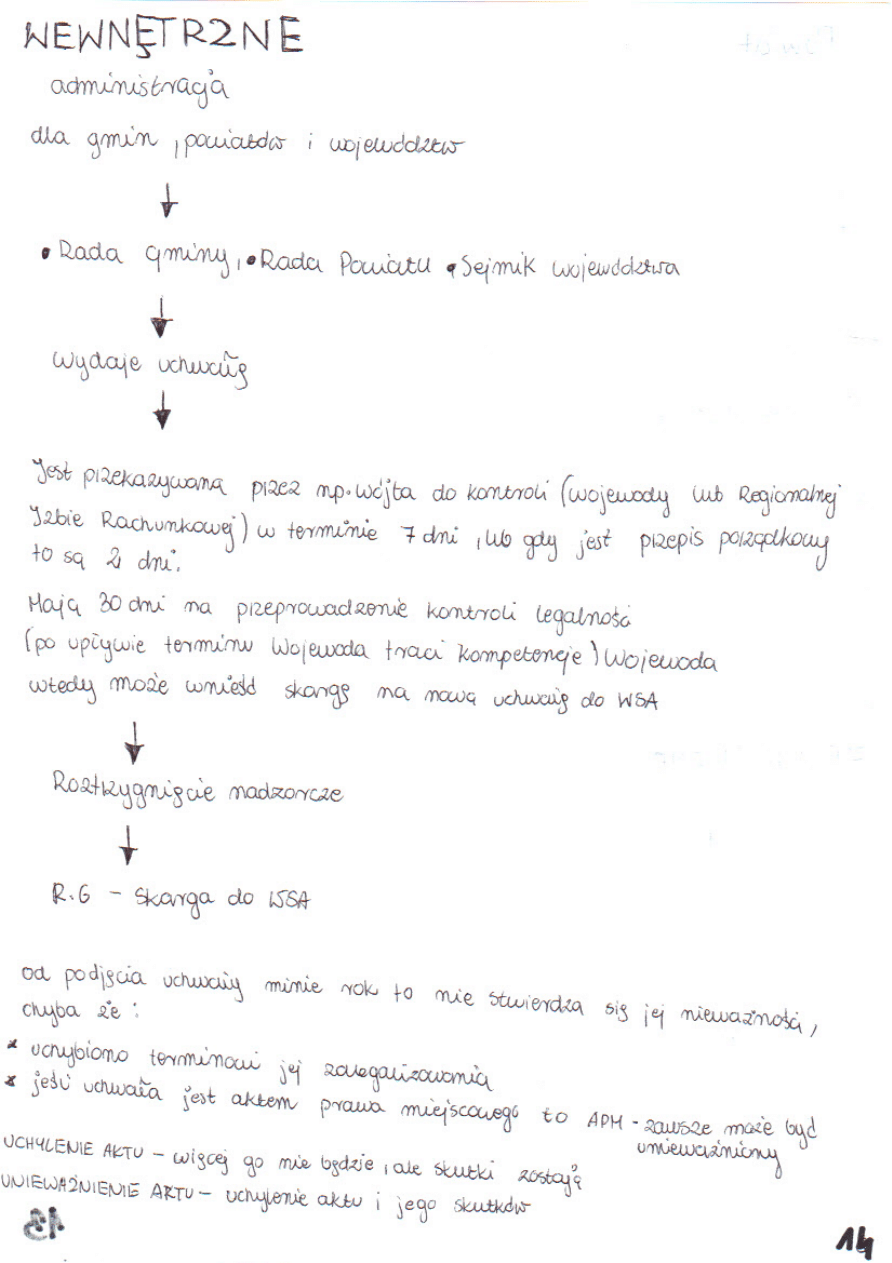 WEWNĘTRZNE
administracja
dla gmin, powiatów i województw
• Rada gminy, • Rada Powiatu • Sejmik województwa
wydaje uchwałę
Jest przekazywana przez np. wójta do kontroli (wojewody lub Regionalnej
Izbie Rachunkowej) w terminie 7 dni, lub gdy jest przepis porządkowy
to są 2 dni.
Mają 30 dni na przeprowadzenie kontroli legalności
(po upływie terminu Wojewoda traci kompetencje) Wojewoda
wtedy może wnieść skargę na nową uchwałę do WSA
Roztrzygnięcie nadzorcze
R.G - Skarga do WSA
od podjęcia uchwały minie rok to nie stwierdza się jej nieważności,
chyba że :
* uchybiono terminowi jej zalegalizowania
* jeśli uchwała jest aktem prawa miejscowego to APM - zawsze może być
unieważniony
UCHYLENIE AKTU - więcej go nie będzie, ale skutki zostają
UNIEWAŻNIENIE AKTU - uchylenie aktu i jego skutków
14